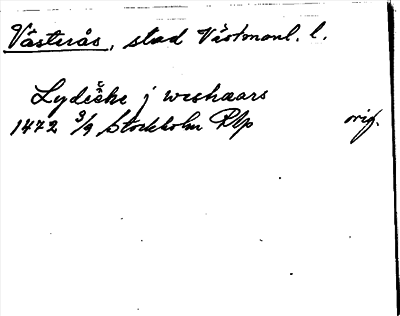 Västerås, stad Västmanl. l.
Lydečke j weshaars
1472 3/9 Stockholm RAp orig.